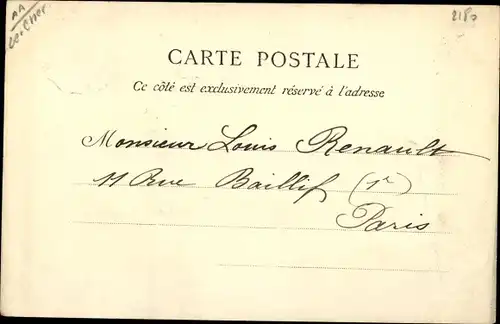 AA
2180
CARTE POSTALE
Ce côté est exclusivement réservé à l'adresse
Monsieur Louis Renault
11 Rue Baillif (1r)
Paris